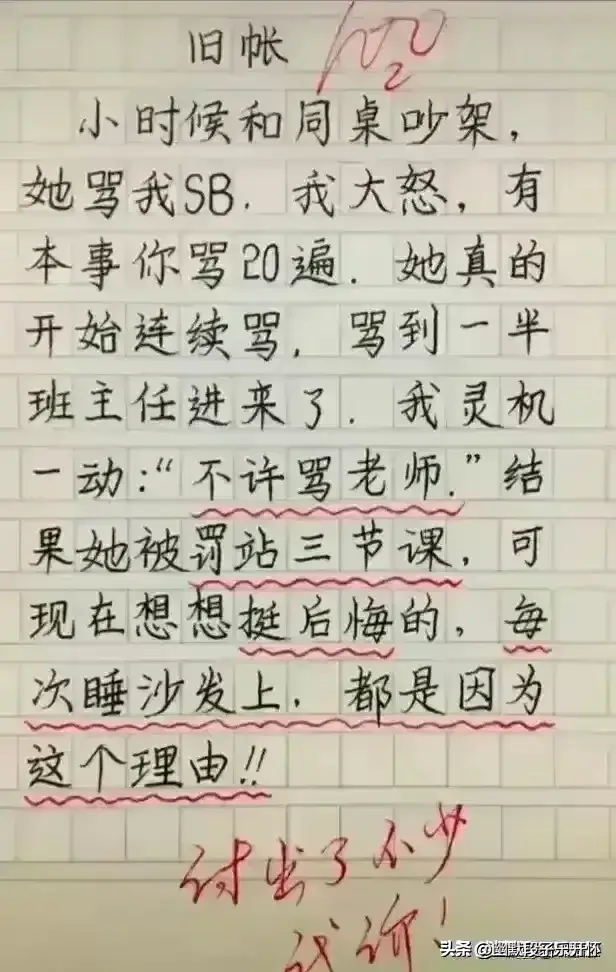 旧帐
100
2
小时候和同桌吵架，
她骂我SB. 我大怒，有
本事你骂20遍. 她真的
开始连续骂，骂到一半
班主任进来了. 我灵机
一动：“不许骂老师.”结
果她被罚站三节课，可
现在想想挺后悔的，每
次睡沙发上，都是因为
这个理由!!
付出了不少
代价！
头条 @幽默段子乐开怀